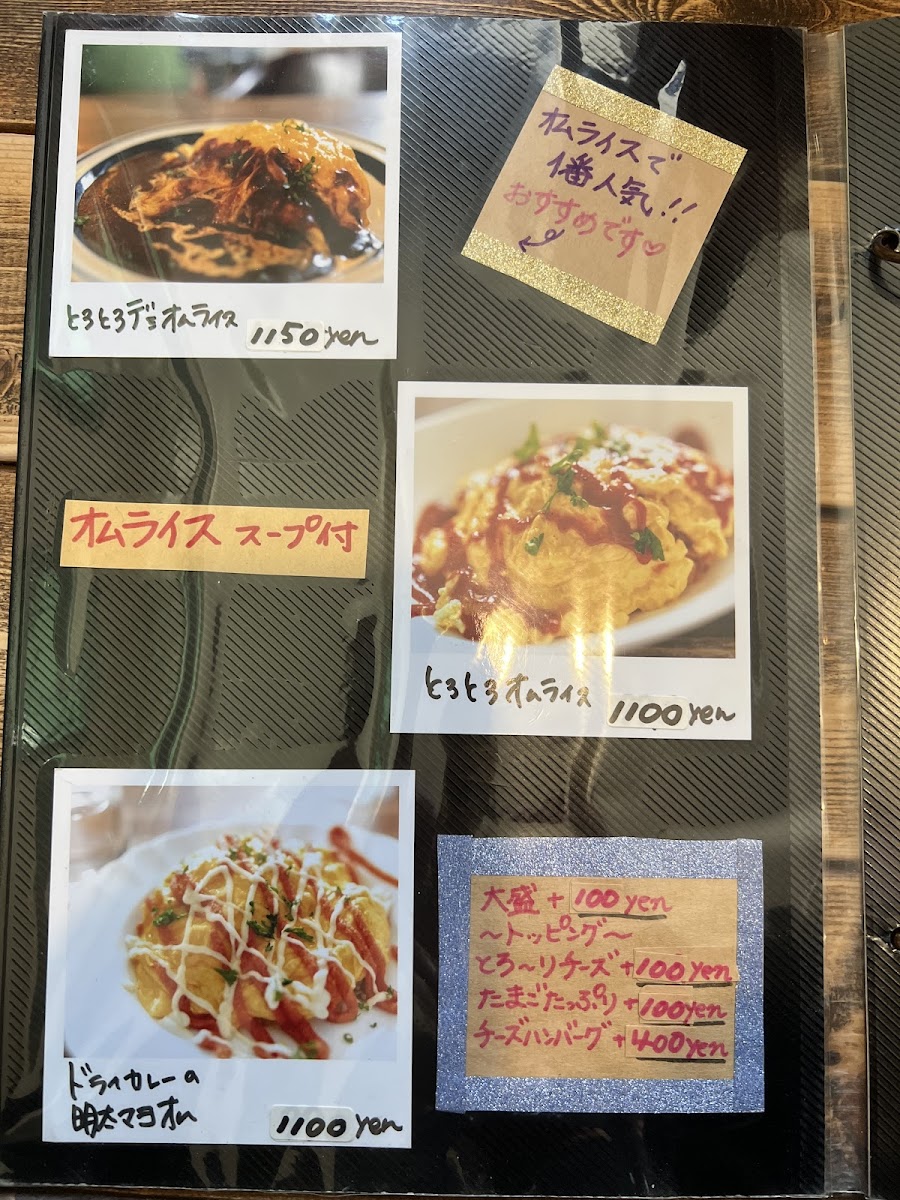 とろとろデミオムライス
1150 yen
オムライスで
1番人気!!
おすすめです♡
オムライス スープ付
とろとろオムライス
1100 yen
ドライカレーの
明太マヨオム
1100 yen
大盛+100yen
〜トッピング〜
とろ〜りチーズ+100yen
たまごたっぷり+100yen
チーズハンバーグ+400yen